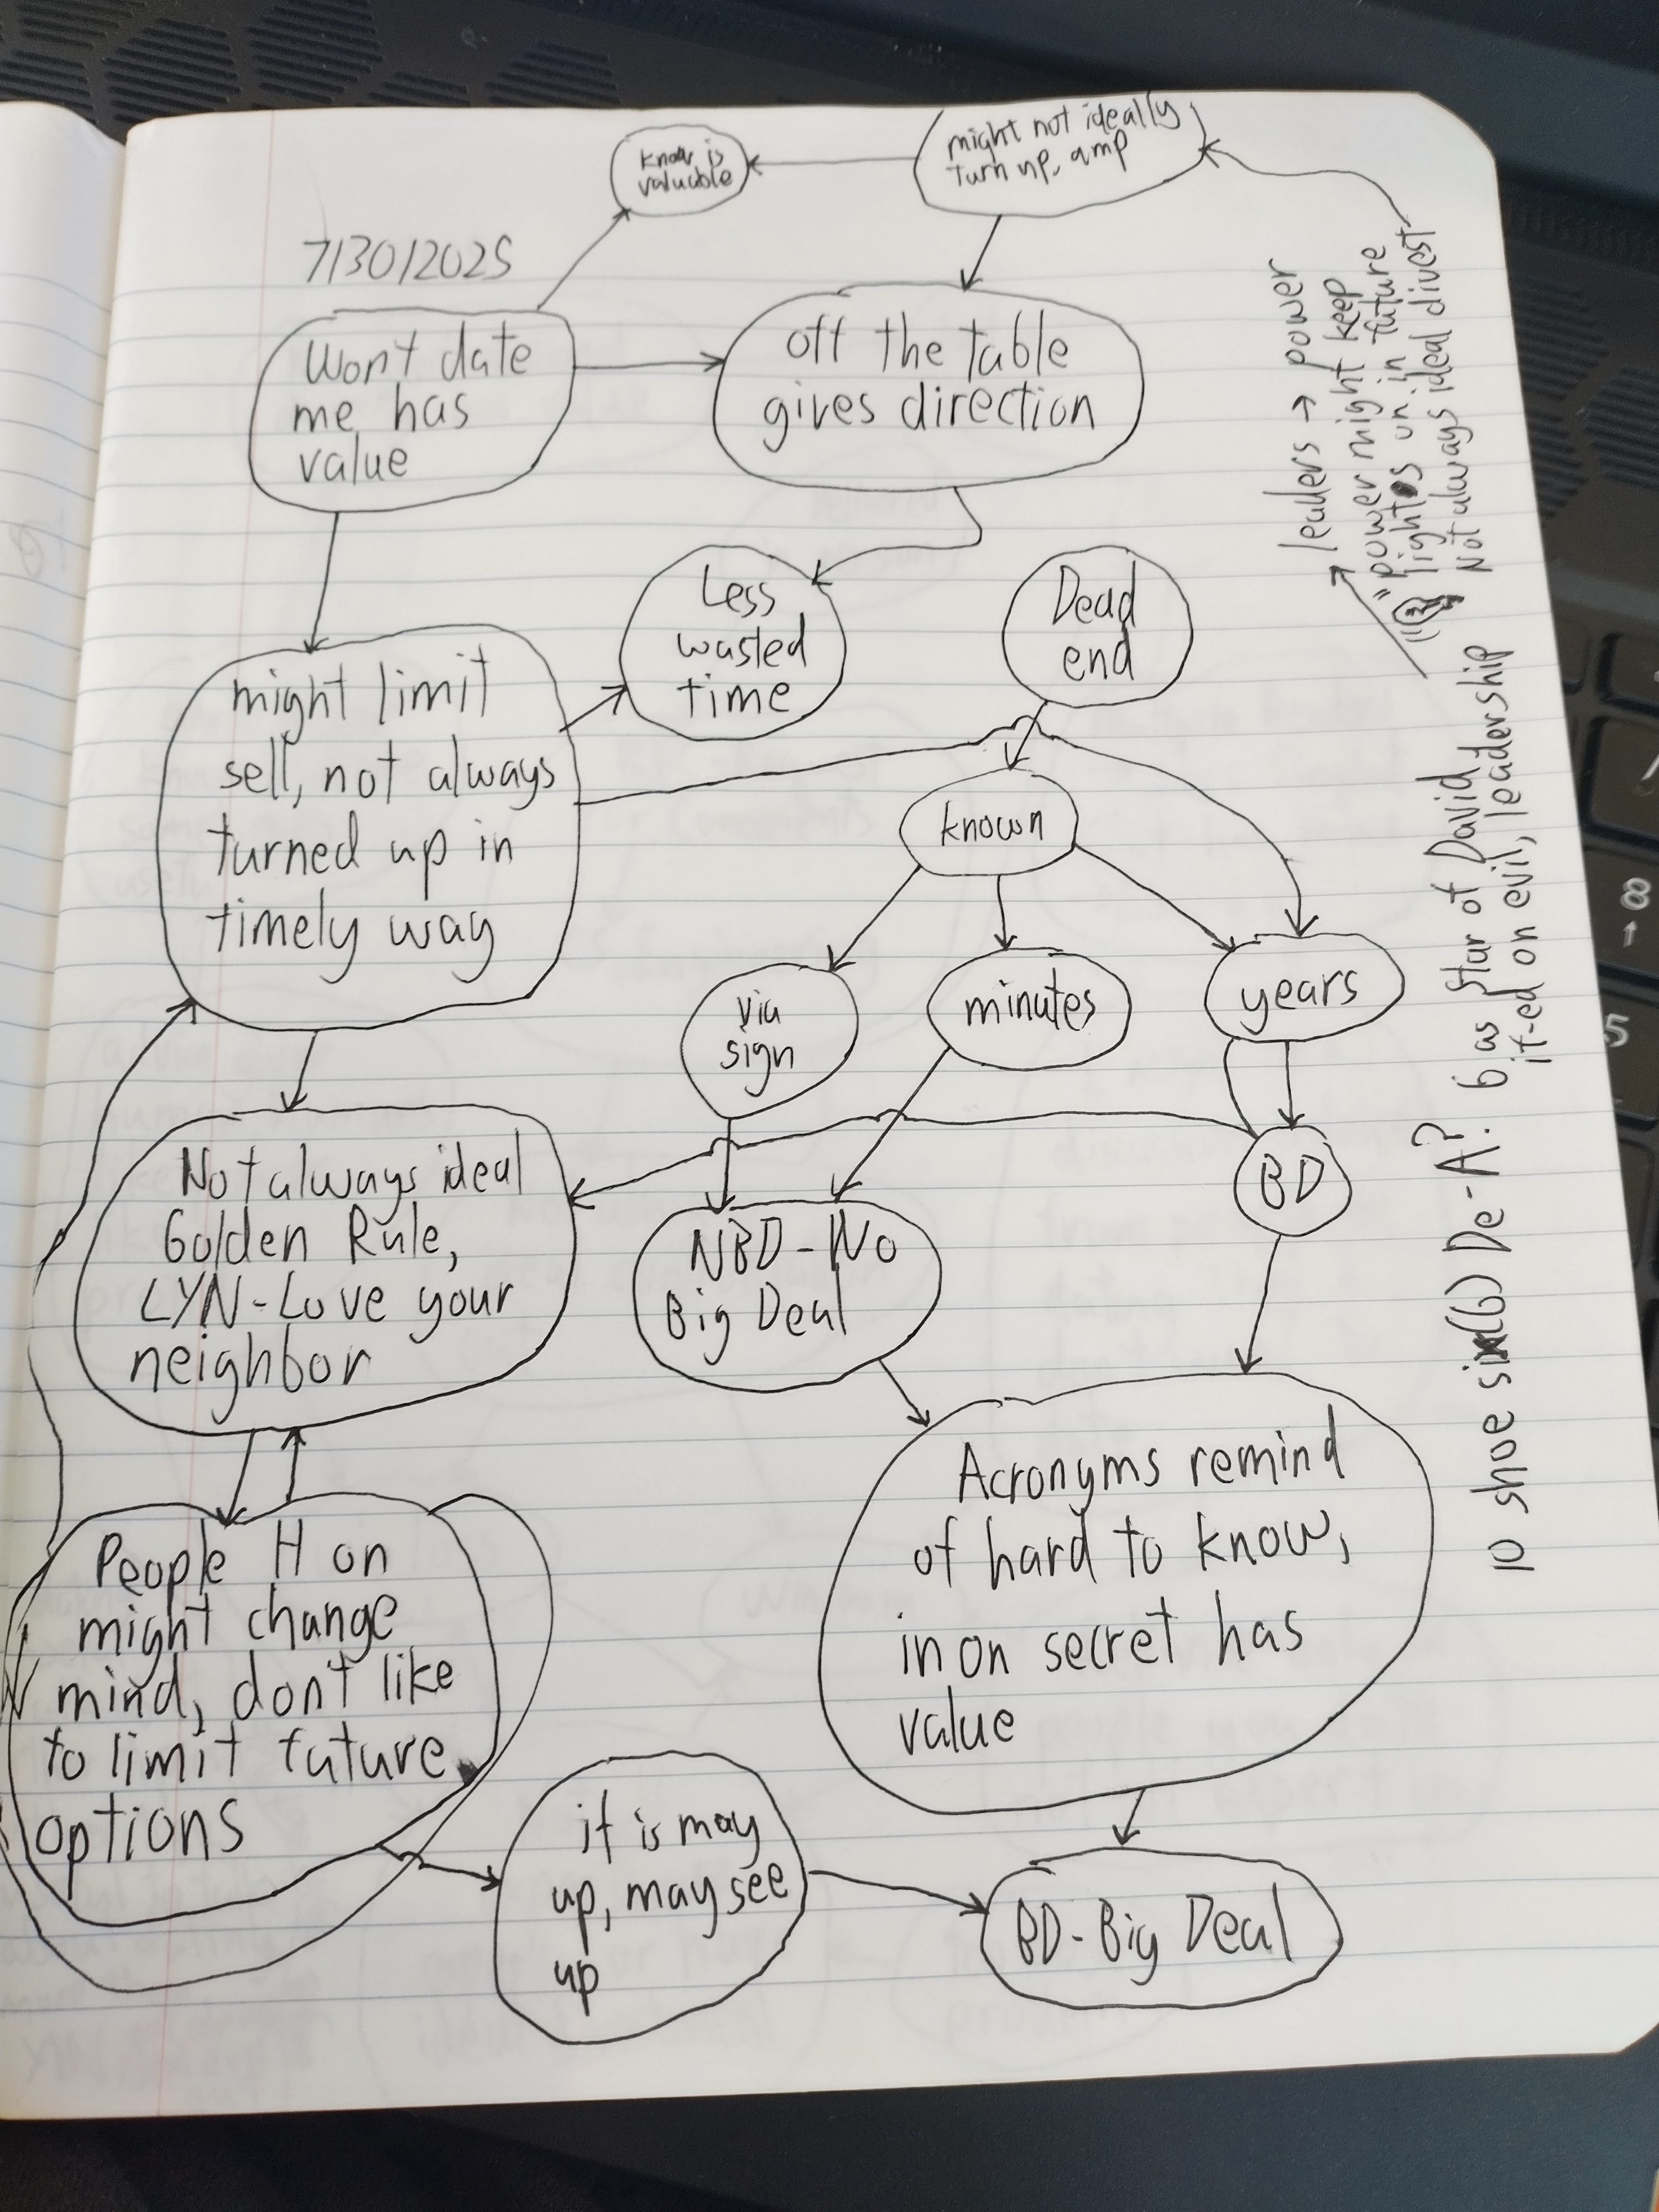 know is
valuable
might not ideally
turn up, amp
7/30/2025
Won't date
me has
value
off the table
gives direction
Less
wasted
time
Dead
end
might limit
sell, not always
turned up in
timely way
known
via
sign
minutes
years
BD
Not always ideal
Golden Rule,
LYN-Love your
neighbor
NBD-No
Big Deal
People H on
might change
mind, don't like
to limit future
options
Acronyms remind
of hard to know,
in on secret has
value
it is may
up, may see
up
BD-Big Deal
leaders → power
"power might keep
lights on in future
Not always ideal divest
10 shoe six(6) De-A? 6 as star of David
it-ed on evil, leadership
8
↑
5